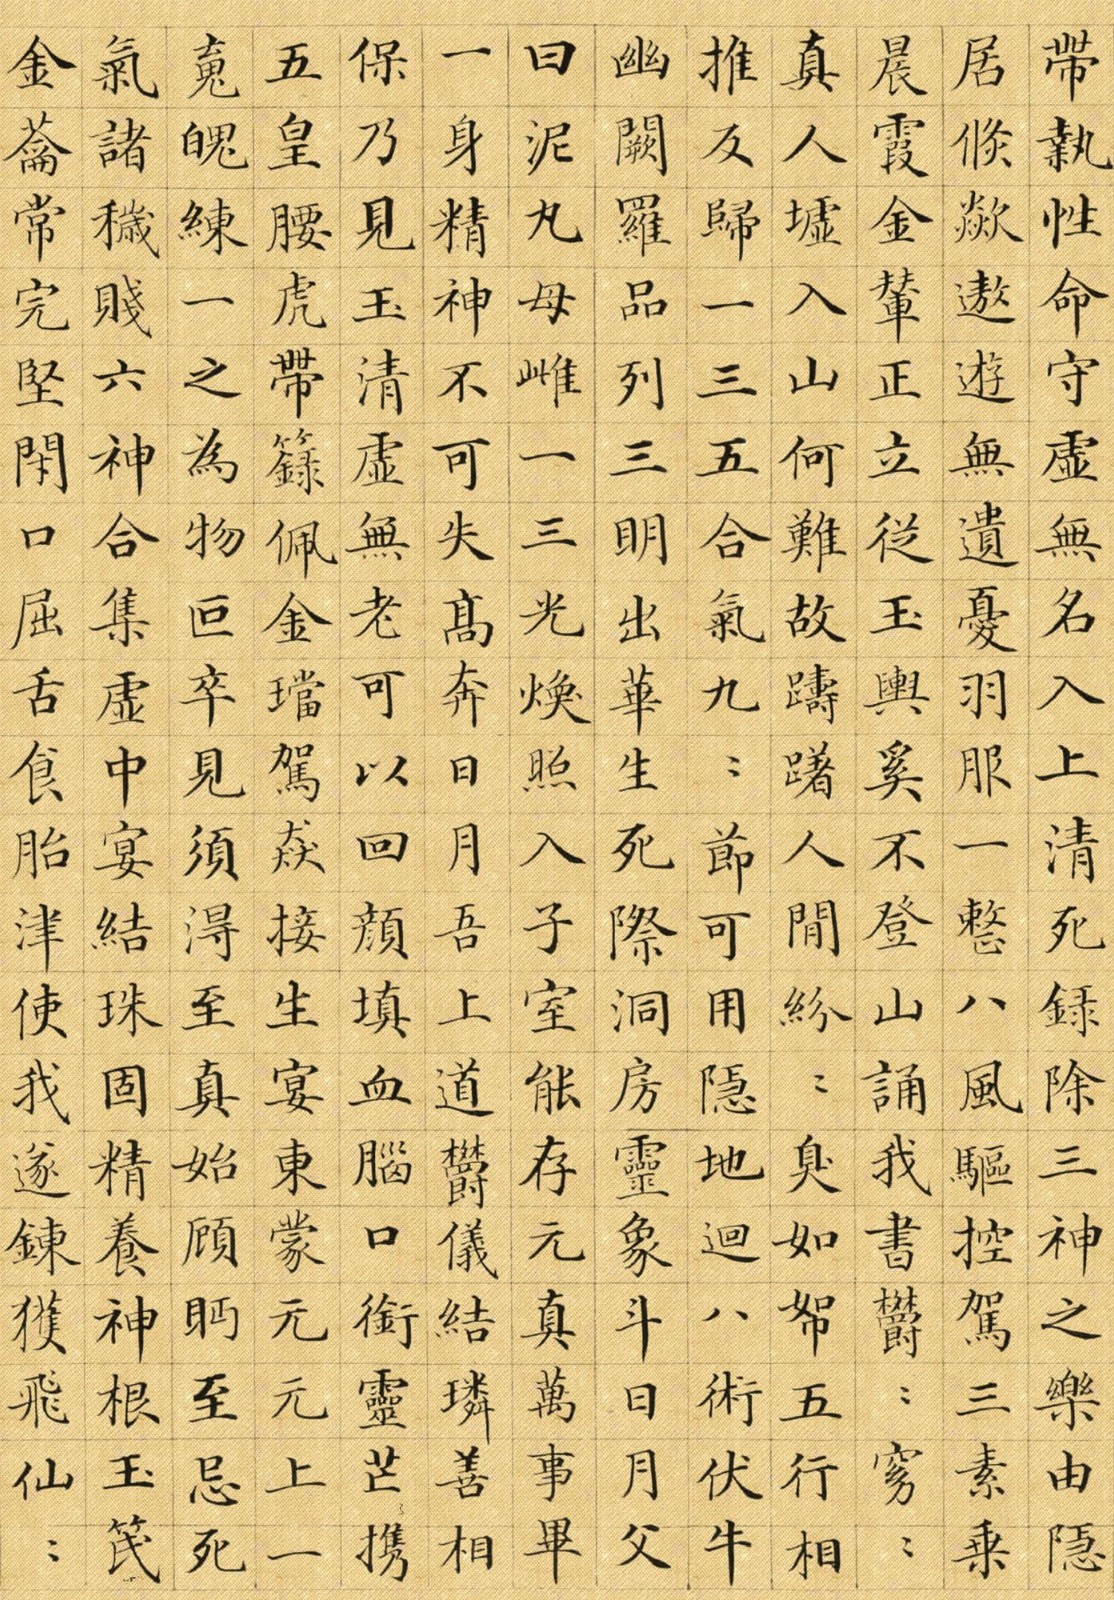 帶執性命守虛無名入上清死錄除三神之樂由隱
居倏歘遨遊無遺憂羽服一整八風驅控駕三素乘
晨霞金輦正立從玉輿奚不登山誦我書欝〻窈〻
真人墟入山何難故躊躇人間紛〻臰如帤五行相
推反歸一三五合氣九〻節可用隱地迴八術伏牛
幽闕羅品列三明出華生死際洞房靈象斗日月父
曰泥丸母雌一三光煥照入子室能存元真萬事畢
一身精神不可失髙奔日月吾上道欝儀結璘善相
保乃見玉清虛無老可以回顔填血腦口銜靈芒携
五皇腰虎帶籙佩金璫駕焱接生宴東蒙元元上一
䰟魄練一之為物叵卒見須得至真始顧眄至忌死
氣諸穢賤六神合集虛中宴結珠固精養神根玉笢
金蘥常完堅閇口屈舌食胎津使我遂鍊獲飛仙〻